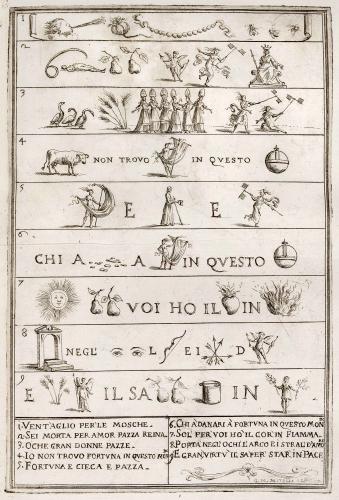 1
2
3
4 NON TROVO IN QVESTO
5 E E
6
CHI A A IN QVESTO
7 VOI HO IL IN
8 NEGL' EI D
9 E IL SA IN
1. VENTAGLIO PER LE MOSCHE.
2. SEI MORTA PER AMOR PAZZA REINA.
3. OCHE GRAN DONNE PAZZE.
4. IO NON TROVO FORTUNA IN QUESTO MON
5. FORTUNA E CIECA E PAZZA.
6. CHI A DANARI A FORTUNA IN QUESTO MON
7. SOL PER VOI HO IL COR IN FIAMMA.
8. PORTA NEGL OCHI L'ARCO E I STRALI D'AMO
9. E GRAN VIRTU IL SAPER STAR IN PACE